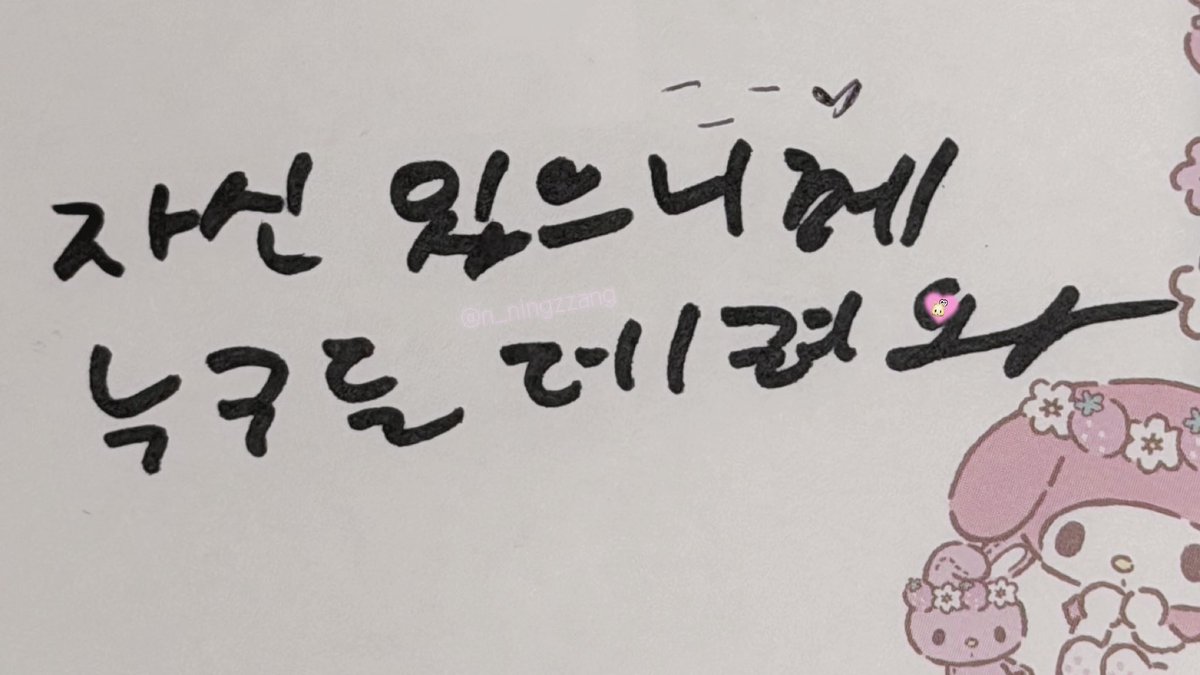 자신 있으니께
@n__ningzzang
누구든 데려와